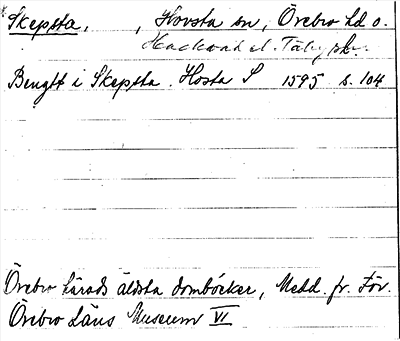 Skepsta, , Hovsta sn, Örebro hd o.
Bengtt i Skepsta. Hosta S 1595 s. 104
Örebro härads äldsta domböcker, Medd. fr. För.
Örebro Läns Museum VI